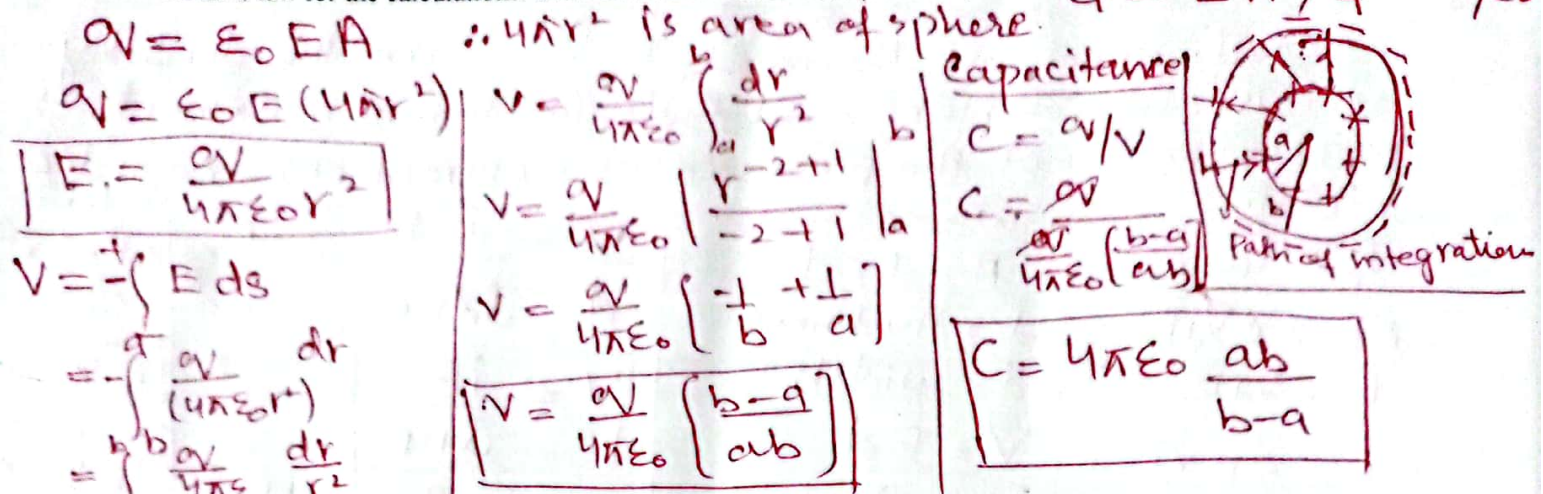 q = ε₀ E A ∴ 4πr² is area of sphere.
q = ε₀ E (4πr²)
E = q / 4πε₀r²
V = -∫ E ds
= -∫ q / (4πε₀r²) dr
= ∫ᵇ q / 4πε dr / r²
V = q / 4πε₀ ∫ₐᵇ dr / r²
V = q / 4πε₀ | r⁻²⁺¹ / -2+1 |ₐᵇ
V = q / 4πε₀ [ -1/b + 1/a ]
V = q / 4πε₀ [ b-a / ab ]
Capacitance
C = q/V
C = q / q / 4πε₀ ( b-a / ab )
C = 4πε₀ ab / b-a
a
b
Path of integration